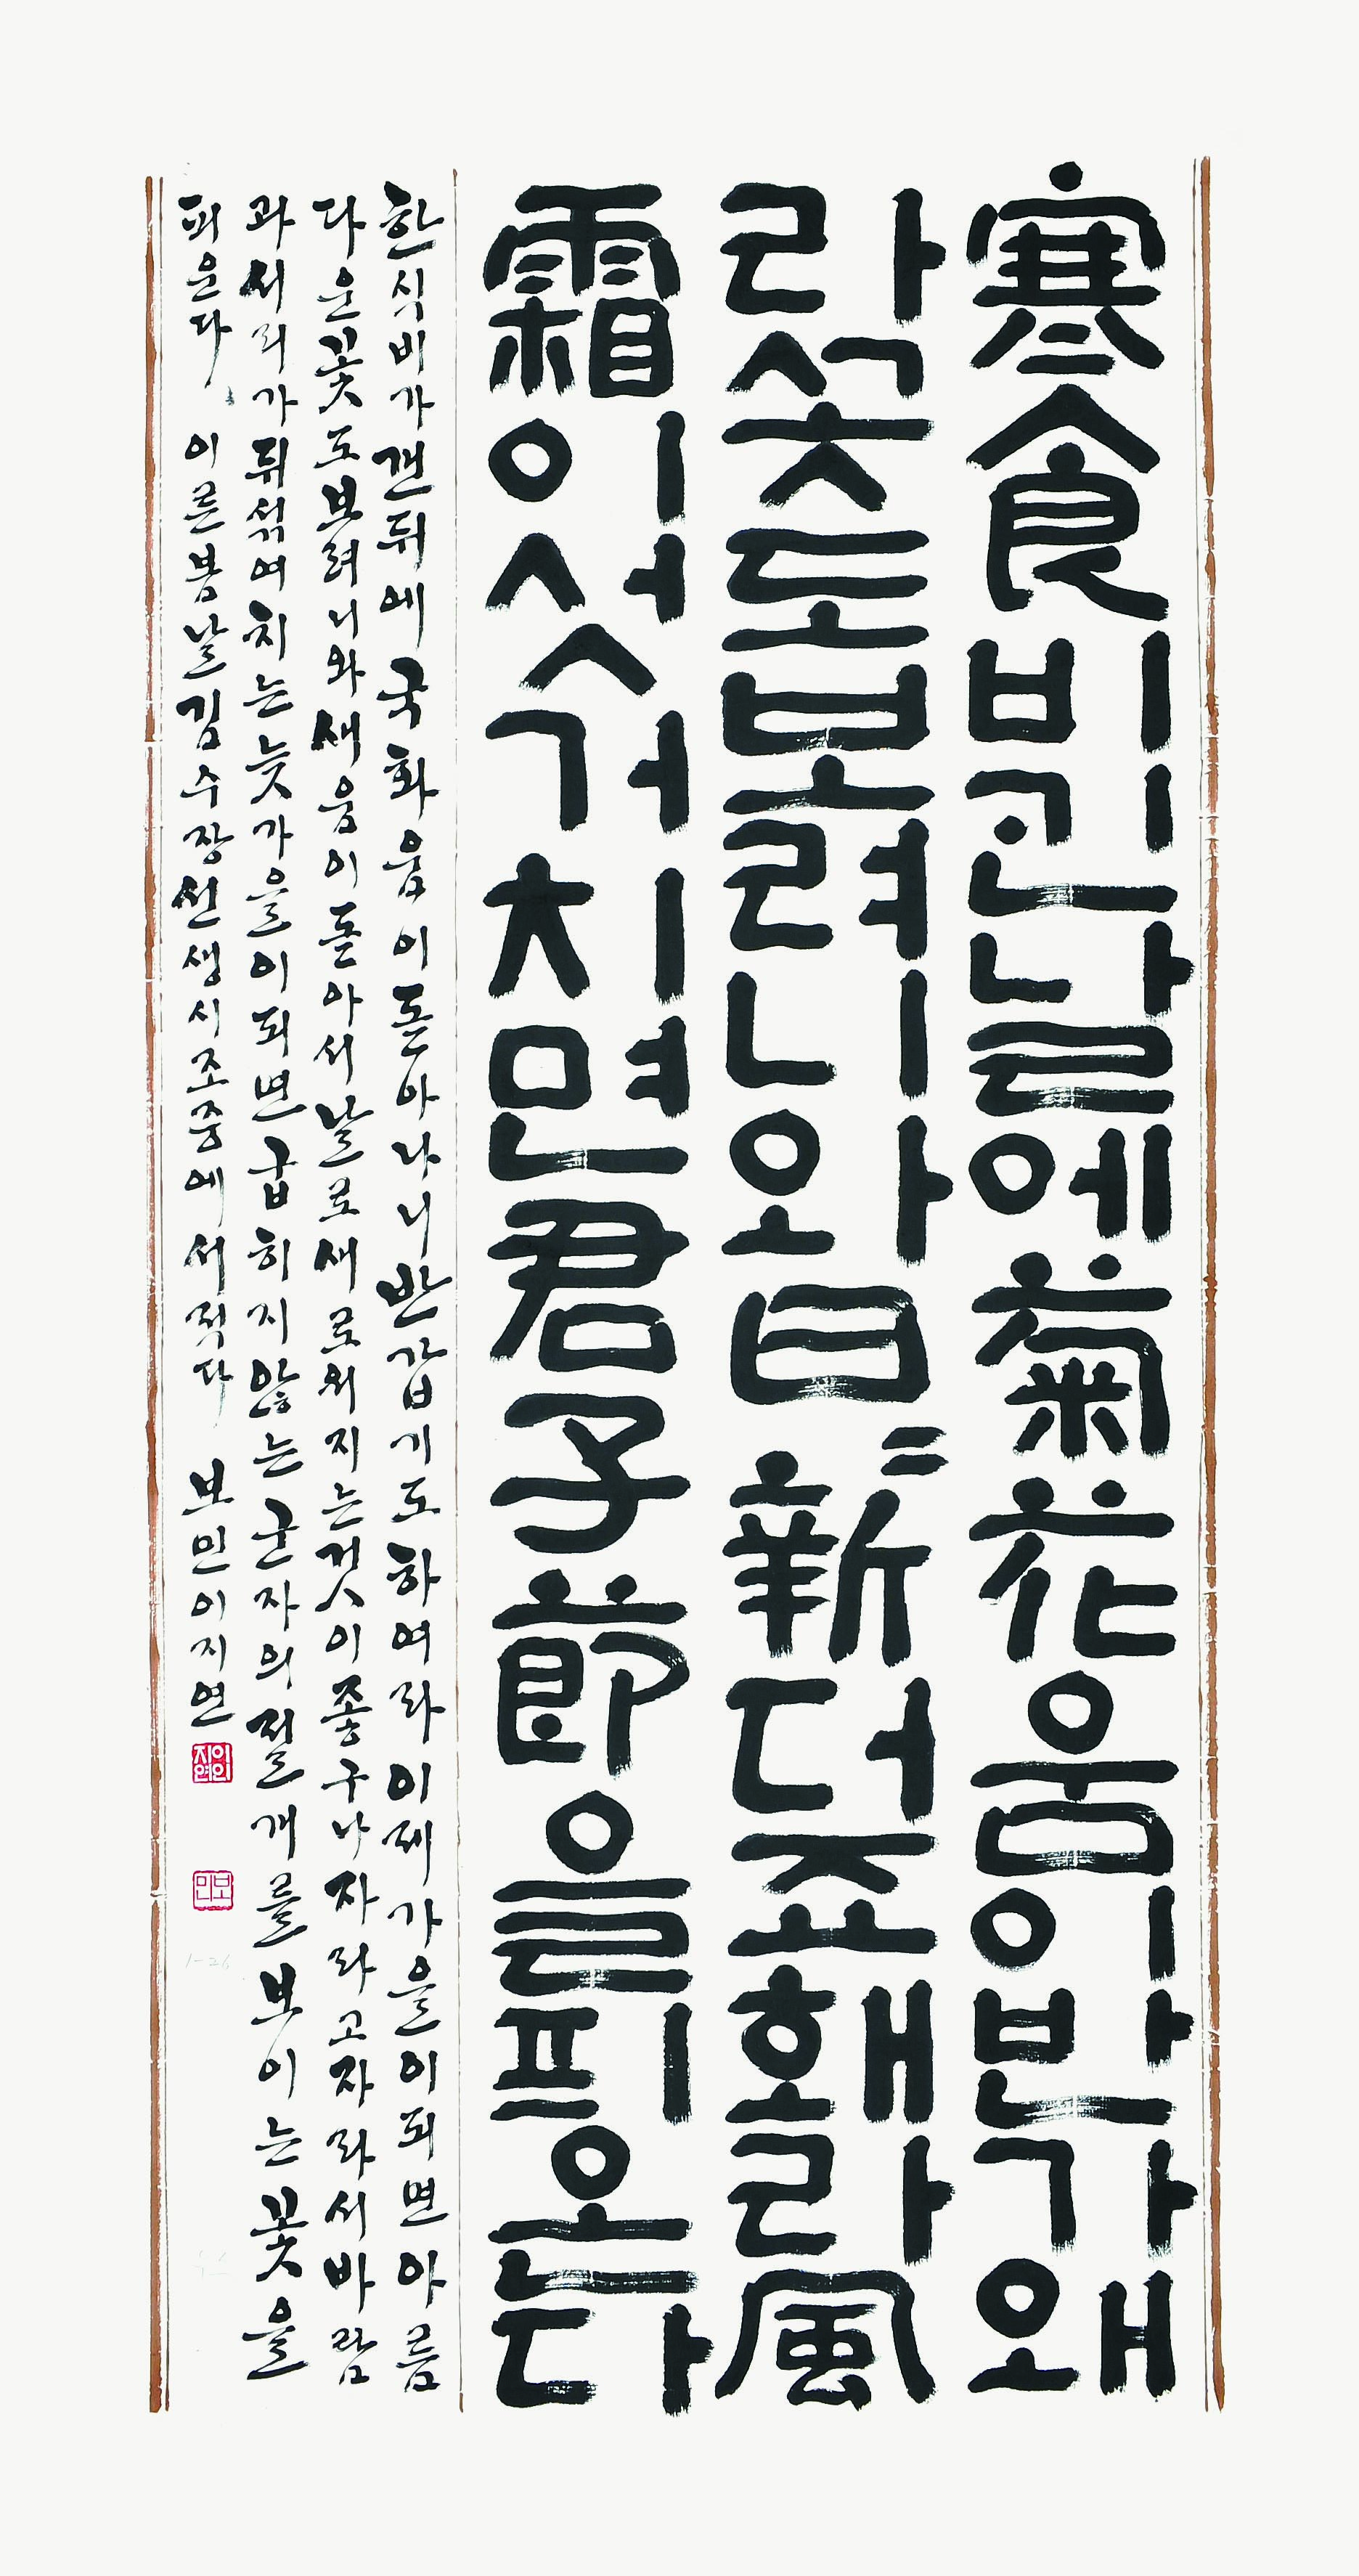 寒食비ᄀᆡᆫ날에菊花움이반가왜
라ᄭᅩᆺ도보려니와日〻新더죠홰라風
霜이섯거치면君子節을픠온다
한식비가갠뒤에국화움이돋아나니반갑기도하여라이제가을이되면아름
다운꽃도보려니와새움이돋아서날로새로워지는것이좋구나자라고자라서바람
과서리가뒤섞여치는늦가을이되면굽히지않는군자의절개를보이는꽃을
피운다 이른봄날김수장선생시조중에서적다 보민이지연
이지연인
보민